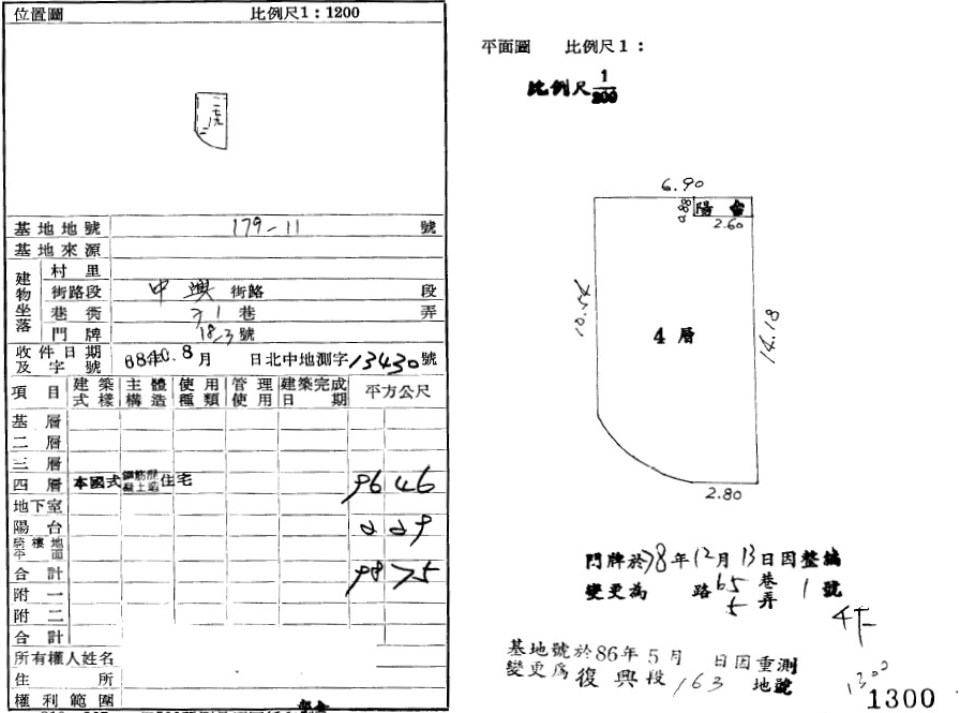 位置圖 比例尺1：1200
基地地號 179-11 號
基地來源
建物坐落
村里
街路段 中興 街路 段
巷衖 71 巷 弄
門牌 18-3 號
收件日期及字號 68年10.8月 日北中地測字13430號
項目 建築式樣 主體構造 使用種類 管理使用 建築完成日期 平方公尺
基層
二層
三層
四層 本國式 鋼筋混凝土造 住宅 96 46
地下室
陽台 2 29
騎樓地平面
合計 98 75
附一
附二
合計
所有權人姓名
住所
權利範圍
平面圖 比例尺1：
比例尺 1/200
6.90
0.88 陽台
2.60
10.54
4層
14.18
2.80
門牌於78年12月13日因整編
變更為 路65巷5弄1號
4F
基地號於86年5月 日因重測
變更為復興段163地號
1300
1300